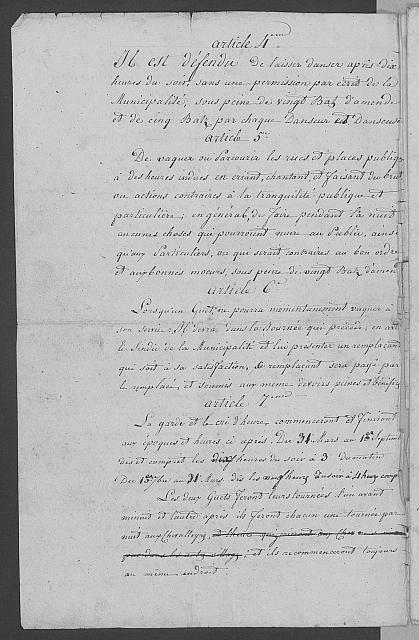 article 4.me
Il est défendu de laisser danser après dix
heures du soir, sans une permission par écrit de la
Municipalité, sous peine de vingt Batz d'amende
et de cinq Batz par chaque Danseur et Danseuse
article 5e
De vaquer ou parcourir les rues et places publiq
à des heures indues en criant, chantant, et faisant du bruit
ou actions contraires à la tranquilité publique et
particulière, en général, de faire pendant la nuit
aucunes choses qui pourroient nuire au Public, ainsi
qu'aux Particuliers, ou qui serait contraires au bon ordre
et aux bonnes moeurs, sous peine de vingt Batz d'amen
article 6e
Lorsqu'un Guet, ne pourra momentanement vaquer à
son service Il devra dans la Journée qui précède, en
le Sindic de la Municipalité et lui présenter un remplaçant
qui soit à sa satisfaction, le remplaçant sera payé par
le remplacé, et soumis aux meme devoirs peines et bénéfic
article 7.eme
La garde et le cri d'heure, commenceront et finiront
aux époques et heures ci après. Du 31 Mars au 15 Septemb
dès et compris les dix heures du soir à 3 du matin
Du 15 7bre au 31 Mars, dès les neuf heures du soir à 4 heur comp
Les deux Guets feront leurs tournées l'un avant
minuit et l'autre après ils feront chacun une tournée par
nuit aux Chevalleyres,
et ils recommenceront toujours
au même endroit